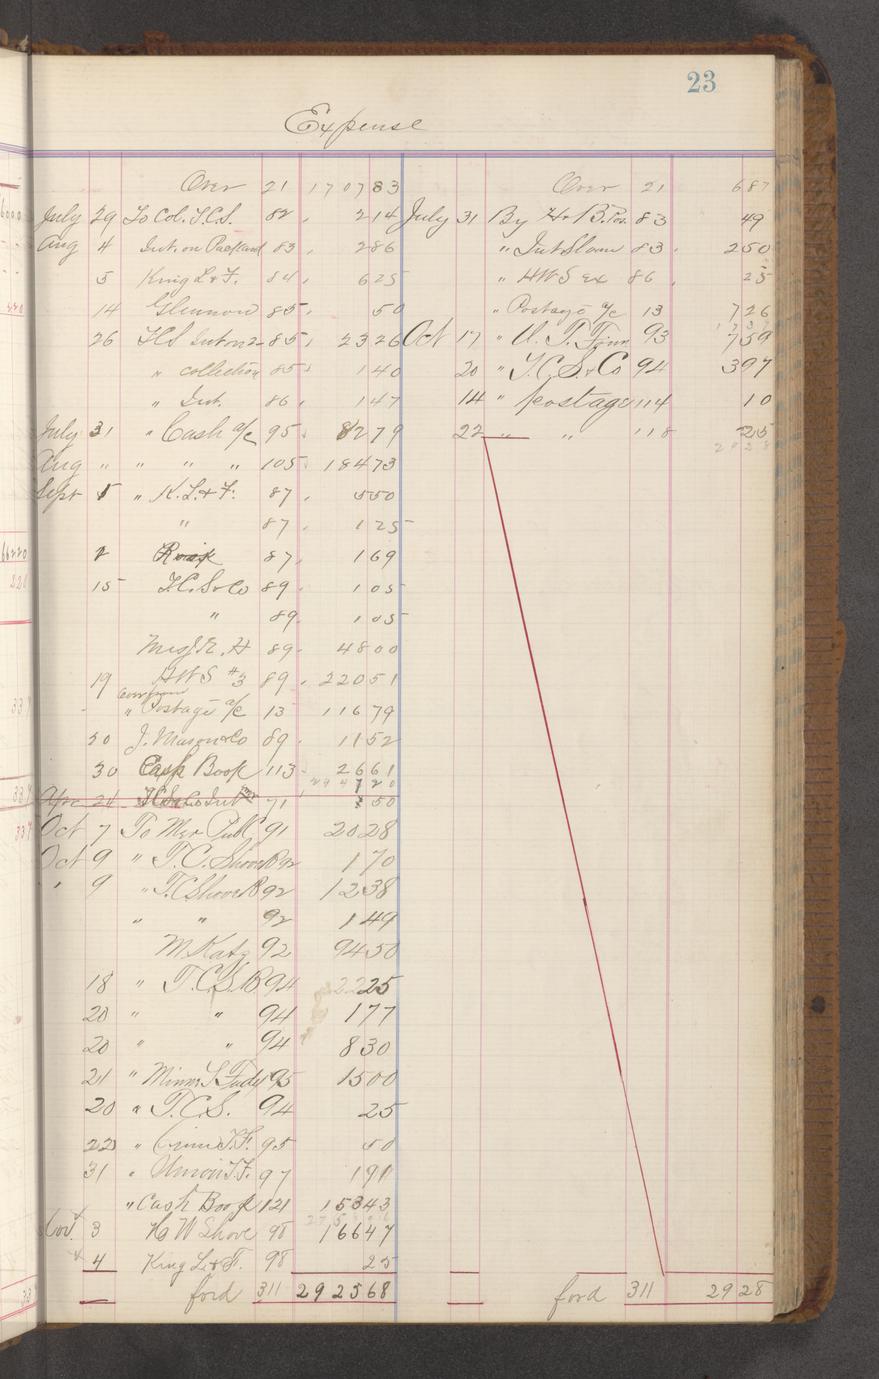 23
Expense
Over 21 1707 83
July 29 To Col. T.C.S. 82 2 14
Aug 4 Int. on Packard 83 2 86
5 King L & F. 84 6 25
14 Glennon 85 50
26 TCS Int on 2 85 23 26
" collection 85 1 40
" Int. 86 1 47
July 31 " Cash a/c 95 82 79
Aug " " " " 105 184 73
Sept 5 " K.L. & F. 87 5 50
" 87 1 25
2 87 1 69
15 T.C.S & Co 89 1 05
" 89 1 05
E. H 89 48 00
19 HWS #3 89 220 51
" Postage a/c 13 116 79
20 J. Mason & Co 89 11 52
30 Cash Book 113 26 61
Apr 24 Int 71 50
Oct 7 To Mer Pub C 91 20 28
Oct 9 " T.C. Shove 92 1 70
" 9 " T.C Shove 92 12 38
" " 92 1 49
M. Katz 92 94 50
18 " T.C.S.B 94 22 25
20 " " 94 1 77
20 " " 94 8 30
21 " Minn. 95 15 00
20 " T.C.S. 94 25
22 " T.F. 95 50
31 " Union T.F. 97 1 91
" Cash Book 121 153 43
Nov. 3 H W Shove 98 166 47
4 King L. & F. 98 25
ford 311 2925 68
Over 21 6 87
July 31 By H. 83 49
" Int Sloan 83 2 50
" HWS Ex 86 25
" Postage a/c 13 7 26
Oct 17 " U. T. 93 7 59
20 " T.C.S. & Co 94 3 97
14 " postage 114 10
22 " " 118 25
ford 311 29 28